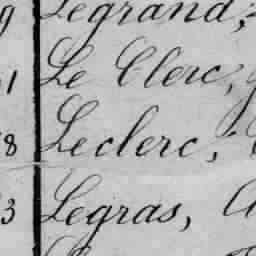 9 Legrand,
1 Le Clerc,
8 Leclerc,
3 Legras,